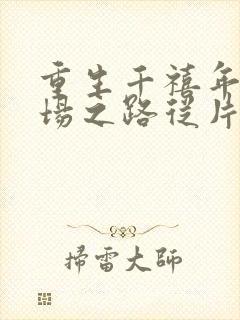 重生千禧年
場之路從片
掃雷大師